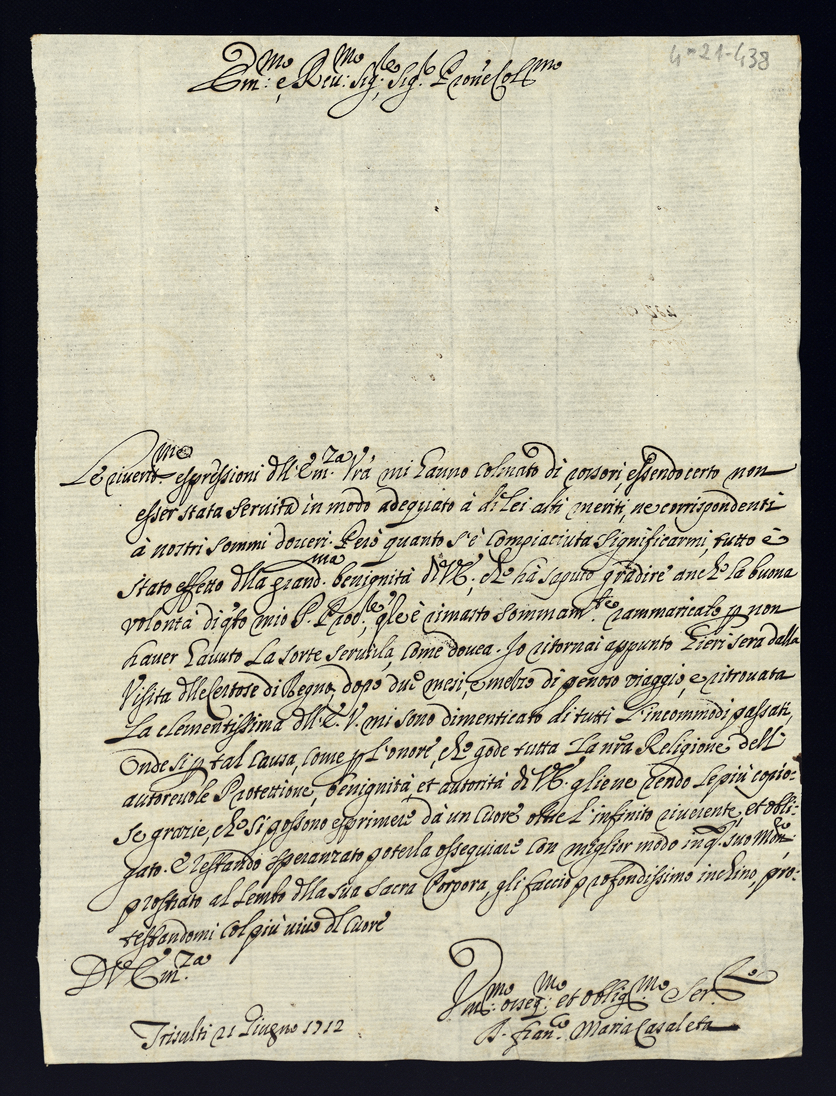 4-21-438
Em.mo e Reu.mo Sig.re Sig.re P̃rone Coll.mo
Le riuerit.me espressioni dll'Em.za Vr̃a mi hanno colmato di rossori, essendo certo non
esser stata seruita in modo adeguato à di lei alti meriti, ne corrispondenti
à nostri sommi doueri. Però quanto s'è compiaciuta significarmi, tutto è
stato effetto dlla grand.ma benignità di V.E., che hà saputo gradire anche la buona
volontà di q̃sto mio P. Proc.re, q̃le è rimasto sommam.te rammaricato p̱ non
hauer hauuto la sorte seruirla, come douea. Io ritornai appunto hieri sera dalla
Visita dlle Certose di Regno, dopo due mesi, e mezzo di penoso viaggio, e ritrouata
la clementissima dll'E.V. mi sono dimenticato di tutti l'incommodi passati,
Onde sì p̱ tal causa, come p̱ l'onore, che gode tutta la nr̃a Religione dell'
autoreuole Protezzione, benignità et autorità di V.E. gliene rendo le più copio=
se grazie, che si possono esprimere dà un cuore oltre l'infinito riuerente, et obli=
gato. E restando speranzato poterla ossequiare con miglior modo in q.o suo Mon.ro
prostrato al lembo dlla sua Sacra Porpora, gli faccio profondissimo inchino, pro=
testandomi col più uiuo dl cuore
D V.ra Em.za
Trisulti 21 Giugno 1712
Vm.mo osseq.mo et oblig.mo Ser.re
D. Fran.co Maria Casaleta